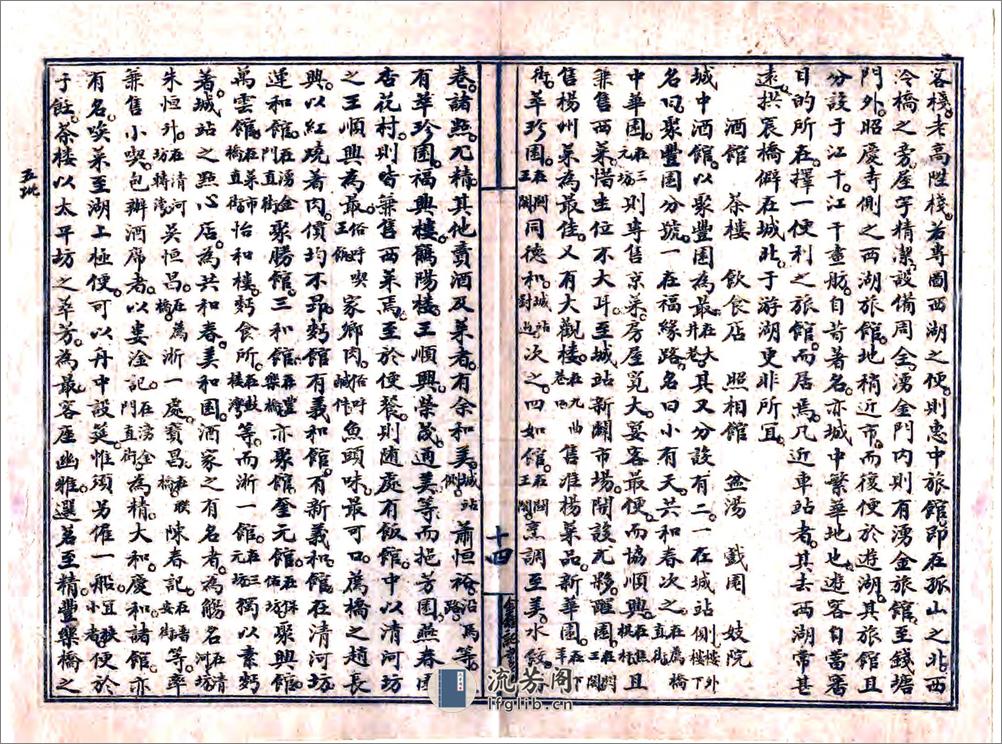 客棧老高陞棧若專圖西湖之便則惠中旅館即在孤山之北西
冷橋之旁屋宇精潔設備周全湧金門內則有湧金旅館至錢塘
門外昭慶寺側之西湖旅館地稍近市而後便於遊湖其旅館且
分設于江干江干童舫自昔著名亦城中繁華地也遊客自當審
目的所在擇一便利之旅館而居焉凡近車站者其去西湖常甚
遠拱宸橋僻在城北于游湖更非所宜
酒館 茶樓 飲食店 照相館 盆湯 戲園 妓院
城中酒館以聚豐園為最在大井巷其又分設有二一在城站側樓外樓下
名曰聚豐園分號一在福緣路名曰小有天共和春次之在薦橋直街
中華園在三元坊則專售京菜房屋寬大宴客最便而協順興在拱辰橋且
兼售西菜惜坐位不大耳至城站新闢市場開設尤夥醉園在開元下
售楊州菜為最佳又有大觀樓在九曲巷口售淮楊菜品新華園在羊下
街萃珍園在開王閣同德和城站對過次之四如館在開王閣烹調至美水餃
卷諸點尤精其他賣酒及菜者有余和美城站側蕭恒裕沿馬路等
有萃珍園福興樓鶴陽樓王順興榮茂通美等而挹芳園燕春園
杏花村則皆兼售西菜焉至於便餐則随處有飯館中以清河坊
之王順興為最俗呼王飯兒喫家鄉肉俗呼鹹件魚頭味最可口薦橋之趙長
興以紅燒著肉價均不昂麪館有義和館有新義和館在清河坊
運和館在湧金門直街聚勝館三和館在豐樂橋亦聚館奎元館在保佑坊聚興館
萬雲館在菜市橋直街怡和樓麪食所在鼓樓灣等而浙一館在三元坊獨以素麪
著城站之點心店為共和春美和園酒家之有名者為觴名在清河坊
朱恒升在清河坊轉灣吳恒昌在橋為浙一處寶昌在聯橋陳春記在吉安街等率
兼售小喫包辦酒席者以婁淦記在湧金門直街為精大和慶和諸館亦
有名喫菜至湖上極便可以丹中設筵惟須另雇一般小者宜狹便於
子飪茶樓以太平坊之萃芳為最客座幽雅選茗至精豐樂橋之
十四
五北
流芳阁
lfglib.cn